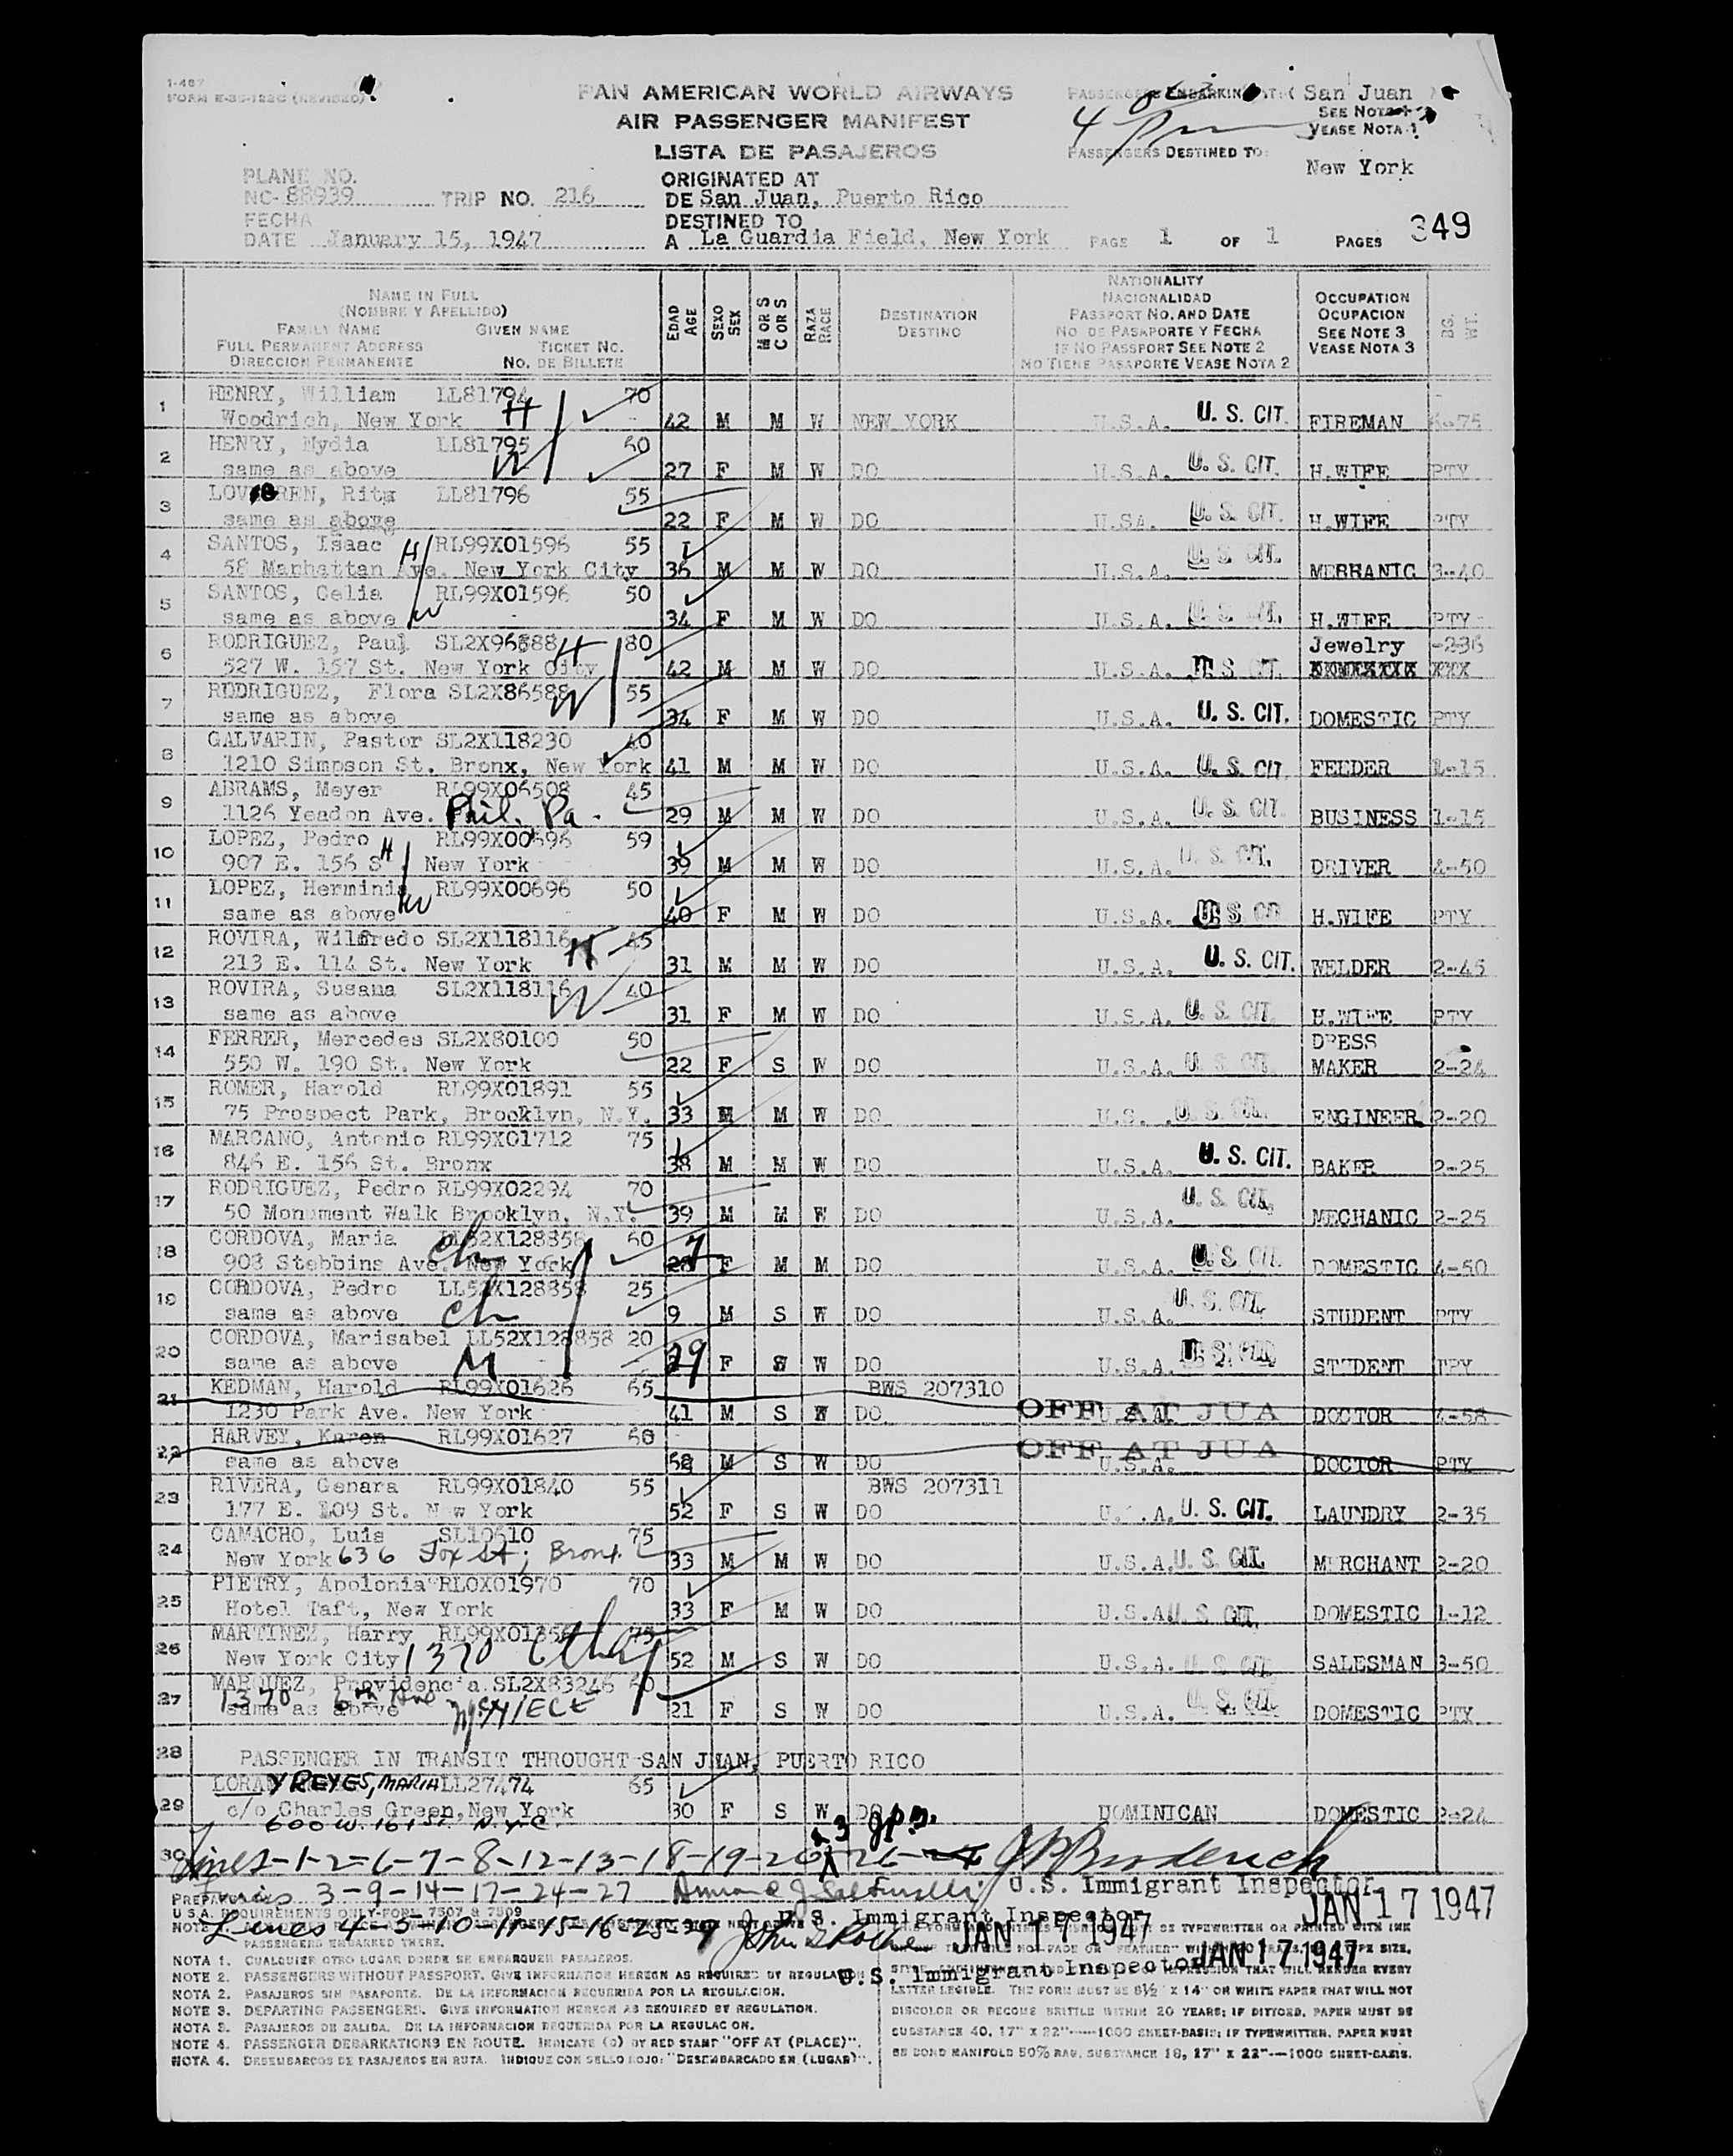 I-487
FORM E-35-122G (REVISED)
PAN AMERICAN WORLD AIRWAYS
AIR PASSENGER MANIFEST
LISTA DE PASAJEROS
PASSENGERS EMBARKING AT: San Juan
SEE NOTE 1
VEASE NOTA 1
4 Pm
PASSENGERS DESTINED TO:
New York
PLANE NO.
NC- 88939 TRIP NO. 216
FECHA
DATE January 15, 1947
ORIGINATED AT
DE San Juan, Puerto Rico
DESTINED TO
A La Guardia Field, New York
PAGE 1 OF 1 PAGES 349
NAME IN FULL
(NOMBRE Y APELLIDO)
FAMILY NAME GIVEN NAME
FULL PERMANENT ADDRESS TICKET NO.
DIRECCION PERMANENTE NO. DE BILLETE
EDAD AGE
SEXO SEX
M OR S C OR S
RAZA RACE
DESTINATION
DESTINO
NATIONALITY
NACIONALIDAD
PASSPORT NO. AND DATE
NO. DE PASAPORTE Y FECHA
IF NO PASSPORT SEE NOTE 2
NO TIENE PASAPORTE VEASE NOTA 2
OCCUPATION
OCUPACION
SEE NOTE 3
VEASE NOTA 3
BG. WT.
1 HENRY, William LL81794 70
Woodrich, New York H 42 M M W NEW YORK U.S.A. U. S. CIT. FIREMAN
2 HENRY, Nydia LL81795 60
same as above W 27 F M W DO U.S.A. U. S. CIT. H.WIFE PTY
3 LOVGREN, Rita LL81796 55
same as above 22 F M W DO U.SA. U. S. CIT. H.WIFE PTY
4 SANTOS, Isaac H RL99X01596 55
58 Manhattan Ave. New York City 36 M M W DO U.S.A. U. S. CIT. MEBHANIC 3-40
5 SANTOS, Celia RL99X01596 50
same as above W 34 F M W DO U.S.A. U. S. CIT. H.WIFE PTY
6 RODRIGUEZ, Paul SL2X96588 H 80 Jewelry -236
527 W. 157 St. New York City 42 M M W DO U.S.A. U. S. CIT. XXX
7 RODRIGUEZ, Flora SL2X86588 W 55
same as above 34 F M W DO U.S.A. U. S. CIT. DOMESTIC PTY
8 GALVARIN, Pastor SL2X118230 40
1210 Simpson St. Bronx, New York 41 M M W DO U.S.A. U. S. CIT. FEEDER 1-15
9 ABRAMS, Meyer RL99X06508 45
1126 Yeadon Ave. Phil. Pa. 29 M M W DO U.S.A. U. S. CIT. BUSINESS 1-15
10 LOPEZ, Pedro H RL99X00696 59
907 E. 156 St New York 39 M M W DO U.S.A. U. S. CIT. DRIVER 4-50
11 LOPEZ, Herminia RL99X00696 50
same as above W 40 F M W DO U.S.A. U. S. CIT. H.WIFE PTY
12 ROVIRA, Wilfredo SL2X118116 H 45
213 E. 114 St. New York 31 M M W DO U.S.A. U. S. CIT. WELDER 2-45
13 ROVIRA, Susana SL2X118116 W 40
same as above 31 F M W DO U.S.A. U. S. CIT. H.WIFE PTY
14 FERRER, Mercedes SL2X80100 50 DRESS
550 W. 190 St. New York 22 F S W DO U.S.A. U. S. CIT. MAKER 2-24
15 ROMER, Harold RL99X01891 55
75 Prospect Park, Brooklyn, N.Y. 33 M M W DO U.S. U. S. CIT. ENGINEER 2-20
16 MARCANO, Antonio RL99X01712 75
846 E. 156 St. Bronx 38 M M W DO U.S.A. U. S. CIT. BAKER 2-25
17 RODRIGUEZ, Pedro RL99X02294 70
50 Monument Walk Brooklyn, N.Y. 39 M M W DO U.S.A. U. S. CIT. MECHANIC 2-25
18 CORDOVA, Maria LL52X128858 ch 60
903 Stebbins Ave. New York 7 F M M DO U.S.A. U. S. CIT. DOMESTIC 4-50
19 CORDOVA, Pedro LL52X128858 25
same as above ch 9 M S W DO U.S.A. U. S. CIT. STUDENT PTY
20 CORDOVA, Marisabel LL52X128858 20
same as above M 29 F S W DO U.S.A. U. S. CIT. STUDENT TPY
21 KEDMAN, Harold RL99X01626 65 BWS 207310
1230 Park Ave. New York 41 M S W DO U.S.A. OFF AT JUA DOCTOR 4-58
22 HARVEY, Karen RL99X01627 60 OFF AT JUA
same as above M S W DO U.S.A. DOCTOR PTY
23 RIVERA, Genara RL99X01840 55 BWS 207311
177 E. 109 St. New York 52 F S W DO U.S.A. U. S. CIT. LAUNDRY 2-35
24 CAMACHO, Luis SL10610 75
New York 636 Fox St; Bronx. 33 M M W DO U.S.A. U. S. CIT. MERCHANT 2-20
25 PIETRY, Apolonia RLOX01970 70
Hotel Taft, New York 33 F M W DO U.S.A. U. S. CIT. DOMESTIC 1-12
26 MARTINEZ, Harry RL99X01354 75
New York City 1370 6th Av 52 M S W DO U.S.A. U. S. CIT. SALESMAN 3-50
27 MARQUEZ, Providencia SL2X83246 60
1370 6th Ave
same as above NIECE 21 F S W DO U.S.A. U. S. CIT. DOMESTIC PTY
28 PASSENGER IN TRANSIT THROUGHT SAN JUAN, PUERTO RICO
29 LORA Y REYES, MARIA LL27474 65
c/o Charles Green, New York 30 F S W DO DOMINICAN DOMESTIC 2-24
600 W. 161 St. N.Y.C.
30 Lines-1-2-6-7-8-12-13-18-19-20-26 23 JPB. J P Broderick
Lines 3-9-14-17-24-27
U.S. Immigrant Inspector
JAN 17 1947
PREPARE
U.S.A. REQUIREMENTS ONLY-FORM 7507 & 7509
Lines 4-5-10-11-15-16-25-29 John S Roche
U.S. Immigrant Inspector
JAN 17 1947
JAN 17 1947
U.S. Immigrant Inspector
PASSENGERS EMBARKED THERE.
NOTA 1. CUALQUIER OTRO LUGAR DONDE SE EMBARQUEN PASAJEROS.
NOTE 2. PASSENGERS WITHOUT PASSPORT. GIVE INFORMATION HEREON AS REQUIRED BY REGULATION
NOTA 2. PASAJEROS SIN PASAPORTE. DE LA INFORMACION REQUERIDA POR LA REGULACION.
NOTE 3. DEPARTING PASSENGERS. GIVE INFORMATION HEREON AS REQUIRED BY REGULATION.
NOTA 3. PASAJEROS DE SALIDA. DE LA INFORMACION REQUERIDA POR LA REGULACION.
NOTE 4. PASSENGER DEBARKATIONS EN ROUTE. INDICATE (O) BY RED STAMP "OFF AT (PLACE)".
NOTA 4. DESEMBARCOS DE PASAJEROS EN RUTA. INDIQUE CON SELLO ROJO: "DESEMBARCADO EN (LUGAR)".
BE TYPEWRITTEN OR PRINTED WITH INK
THAT WILL NOT FADE OR "FEATHER"
TYPE SIZE,
IMPRESSION THAT WILL RENDER EVERY
LETTER LEGIBLE. THE FORM MUST BE 8½" X 14" ON WHITE PAPER THAT WILL NOT
DISCOLOR OR BECOME BRITTLE WITHIN 20 YEARS; IF DITTOED, PAPER MUST BE
SUBSTANCE 40, 17" X 22"—1000 SHEET-BASIS; IF TYPEWRITTEN, PAPER MUST
BE BOND MANIFOLD 50% RAG, SUBSTANCE 18, 17" X 22"—1000 SHEET-BASIS.